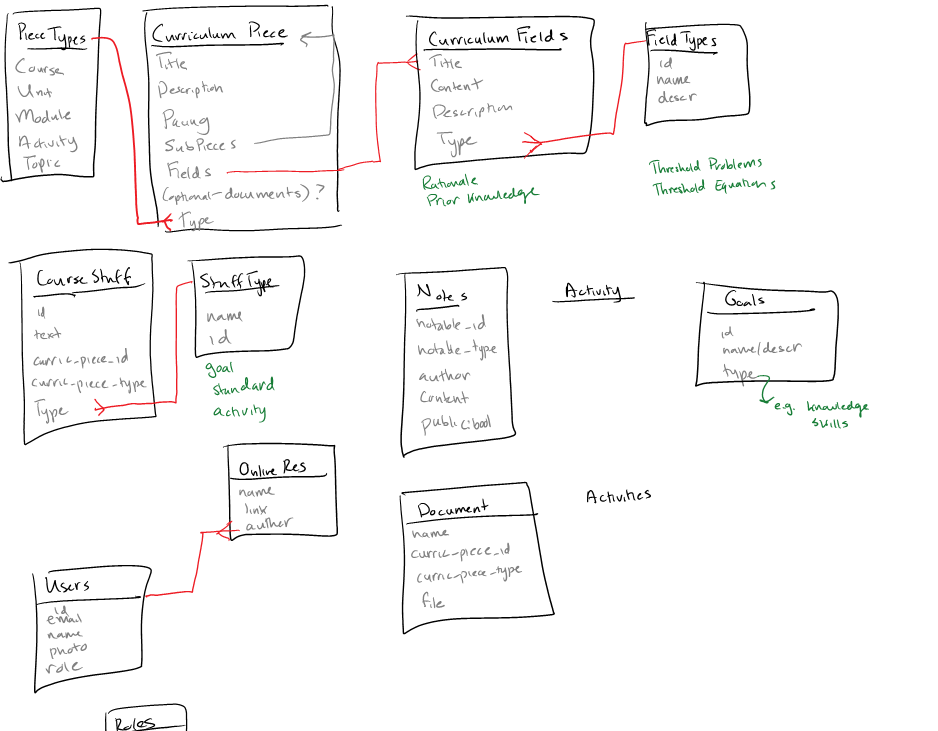 Piece Types
Course
Unit
Module
Activity
Topic
Curriculum Piece
Title
Description
Pacing
SubPieces
Fields
(optional-documents) ?
Type
Curriculum Fields
Title
Content
Description
Type
Rationale
Prior Knowledge
Field Types
id
name
descr
Threshold Problems
Threshold Equations
Course Stuff
id
text
curric-piece_id
curric-piece-type
Type
Stuff Type
name
id
goal
standard
activity
Notes
notable_id
notable_type
author
Content
public:bool
Activity
Goals
id
name/descr
type
e.g. knowledge
skills
Online Res
name
link
author
Document
name
curric-piece_id
curric-piece-type
file
Activities
Users
id
email
name
photo
role
Roles